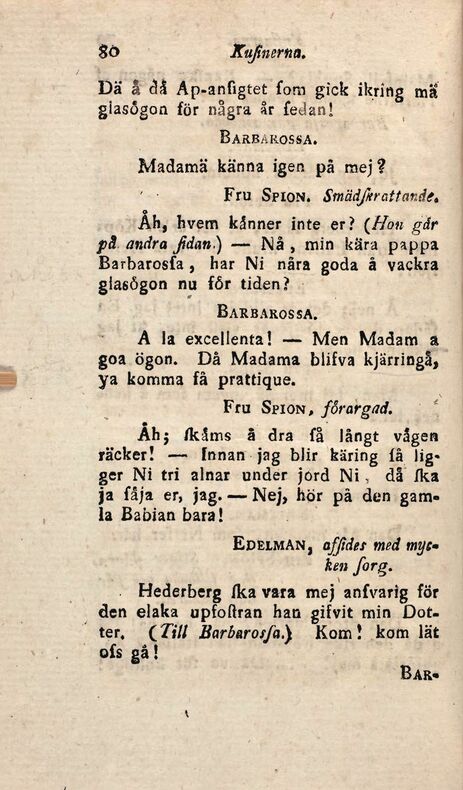 80 Kuſinerna.
Dä å då Ap-anſigtet ſom gick ikring mä
glasögon för några år ſedan!
BARBAROSSA.
Madamä känna igen på mej?
FRU SPION. Smädſkrattande.
Åh, hvem känner inte er? (Hon går
på andra ſidan.) — Nå, min kära pappa
Barbarosſa, har Ni nåra goda å vackra
glasögon nu för tiden?
BARBAROSSA.
A la excellenta! — Men Madam a
goa ögon. Då Madama blifva kjärringå,
ya komma få prattique.
FRU SPION, förargad.
Åh; ſkäms å dra ſå långt vägen
räcker! — Innan jag blir käring ſå lig-
ger Ni tri alnar under jord Ni, då ſka
ja ſäja er, jag. — Nej, hör på den gam-
la Babian bara!
EDELMAN, afſides med myc-
ken ſorg.
Hederberg ſka vara mej anſvarig för
den elaka upfoſtran han gifvit min Dot-
ter. (Till Barbarosſa.) Kom! kom lät
oſs gå!
BAR-